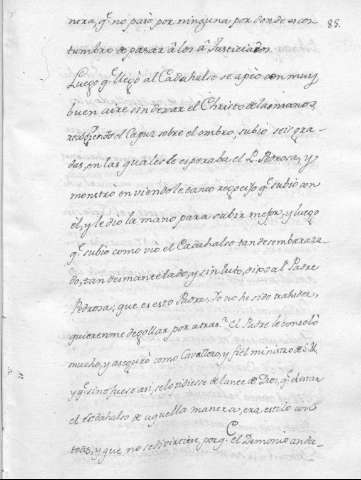 85.
nera, q.e no paso por ninguna por donde acos
tumbra de pasar à los ajusticiados.
Luego q.e llegó al Cadahalso se apeo con muy
buen aire sin dexar el Christo de las manos,
recogiendo el Capuz sobre el ombro, subio seis gra
das, en las quales le esperaba el P. Pedrosa, y
monstrò en viendole tanto regocijo q.e subio con
él, y le dio la mano para subir mejor, y luego
q.e subio como vio el Cadahalso tan desembaraza
do, tan desmantelado, y sin luto, dixo al Padre
Pedrosa; que es esto Padre, Yo no he sido traidor,
quierenme degollar por atras? El Padre le consolò
mucho, y aseguró como Cavallero, y fiel ministro de S.M.
y q.e si no fuese asi, se lo pidiese de lance de Dios, q.e el estar
el Cadahalso de aquella manera, era estilo con
todos, y que no se divirtiese, porq.e el Demonio anda